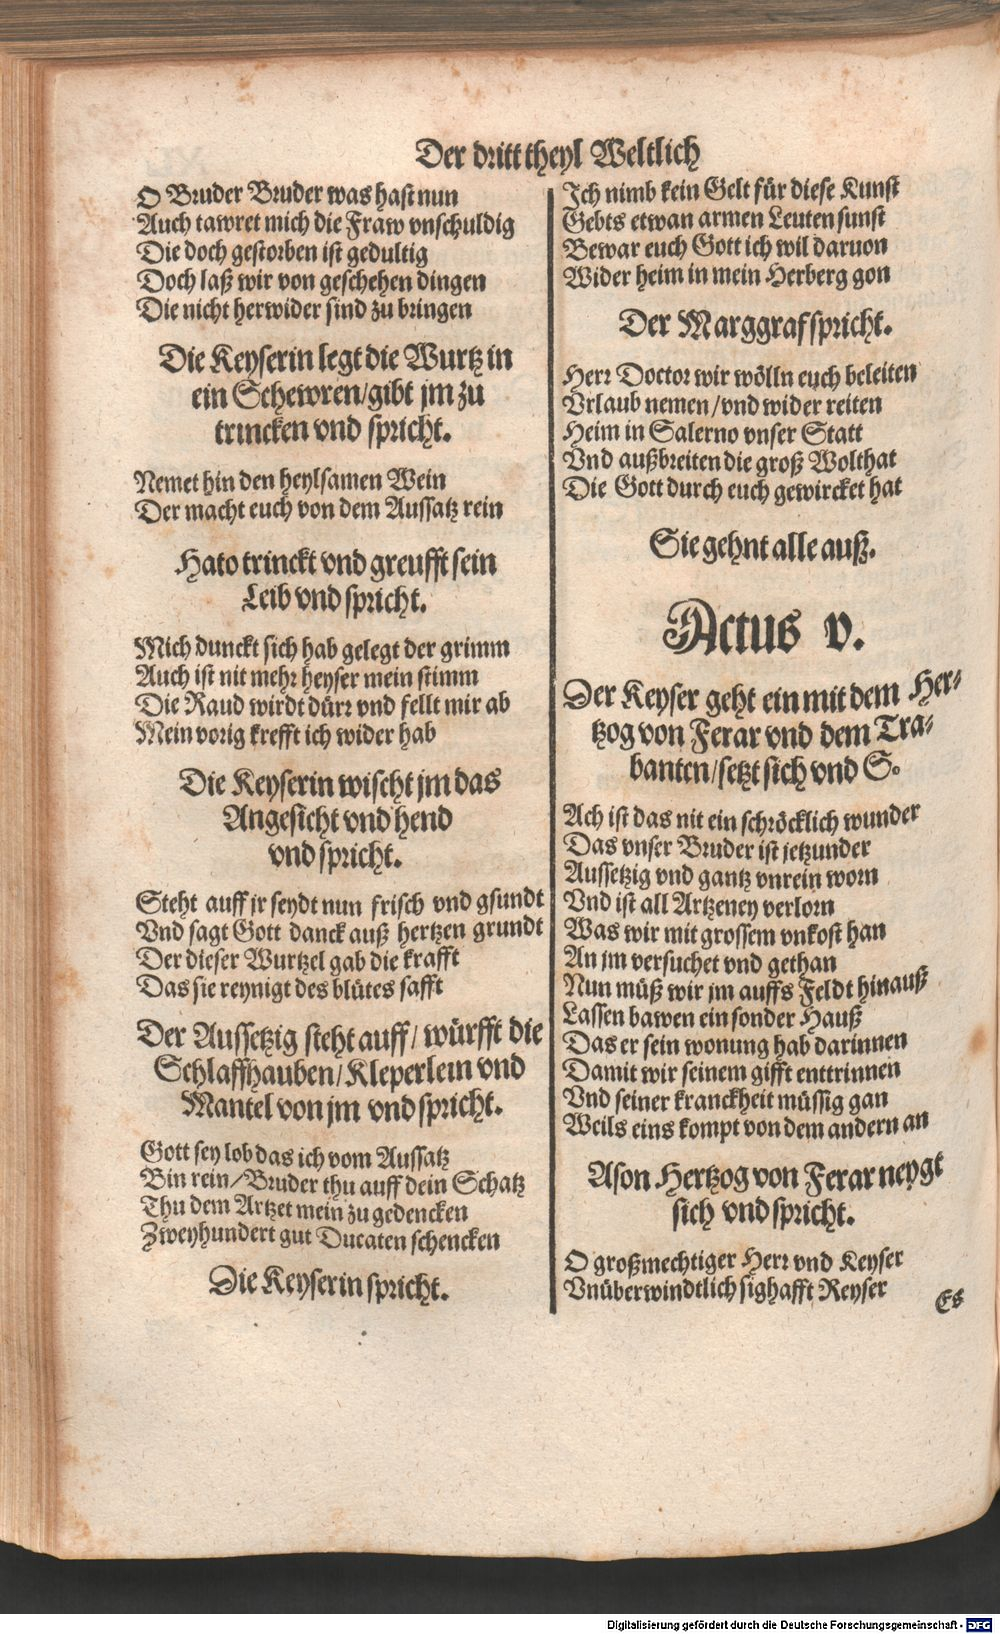 Der dritt theyl Weltlich
O Bruder Bruder was hast nun
Auch tawret mich die Fraw vnschuldig
Die doch gestorben ist gedultig
Doch laß wir von geschehen dingen
Die nicht herwider sind zu bringen
Die Keyserin legt die Wurtz in
ein Schewren/gibt jm zu
trincken vnd spricht.
Nemet hin den heylsamen Wein
Der macht euch von dem Aussatz rein
Hato trinckt vnd greufft sein
Leib vnd spricht.
Mich dunckt sich hab gelegt der grimm
Auch ist nit mehr heyser mein stimm
Die Raud wirdt dürr vnd fellt mir ab
Mein vorig krefft ich wider hab
Die Keyserin wischt jm das
Angesicht vnd hend
vnd spricht.
Steht auff jr seydt nun frisch vnd gsundt
Vnd sagt Gott danck auß hertzen grundt
Der dieser Wurtzel gab die krafft
Das sie reynigt des blütes safft
Der Aussetzig steht auff/ würfft die
Schlaffhauben/Kleperlein vnd
Mantel von jm vnd spricht.
Gott sey lob das ich vom Aussatz
Bin rein/Bruder thu auff dein Schatz
Thu dem Artzet mein zu gedencken
Zweyhundert gut Ducaten schencken
Die Keyserin spricht.
Ich nimb kein Gelt für diese Kunst
Gebts etwan armen Leuten sunst
Bewar euch Gott ich wil daruon
Wider heim in mein Herberg gon
Der Marggraf spricht.
Herr Doctor wir wölln euch beleiten
Vrlaub nemen/vnd wider reiten
Heim in Salerno vnser Statt
Vnd außbreiten die groß Wolthat
Die Gott durch euch gewircket hat
Sie gehnt alle auß.
Actus v.
Der Keyser geht ein mit dem Her-
tzog von Ferar vnd dem Tra-
banten/setzt sich vnd S.
Ach ist das nit ein schröcklich wunder
Das vnser Bruder ist jetzunder
Aussetzig vnd gantz vnrein worn
Vnd ist all Artzeney verlorn
Was wir mit grossem vnkost han
An jm versuchet vnd gethan
Nun müß wir jm auffs Feldt hinauß
Lassen bawen ein sonder Hauß
Das er sein wonung hab darinnen
Damit wir seinem gifft enttrinnen
Vnd seiner kranckheit müssig gan
Weils eins kompt von dem andern an
Ason Hertzog von Ferar neygt
sich vnd spricht.
O großmechtiger Herr vnd Keyser
Vnüberwindtlich sighafft Reyser
Es
Digitalisierung gefördert durch die Deutsche Forschungsgemeinschaft - DFG